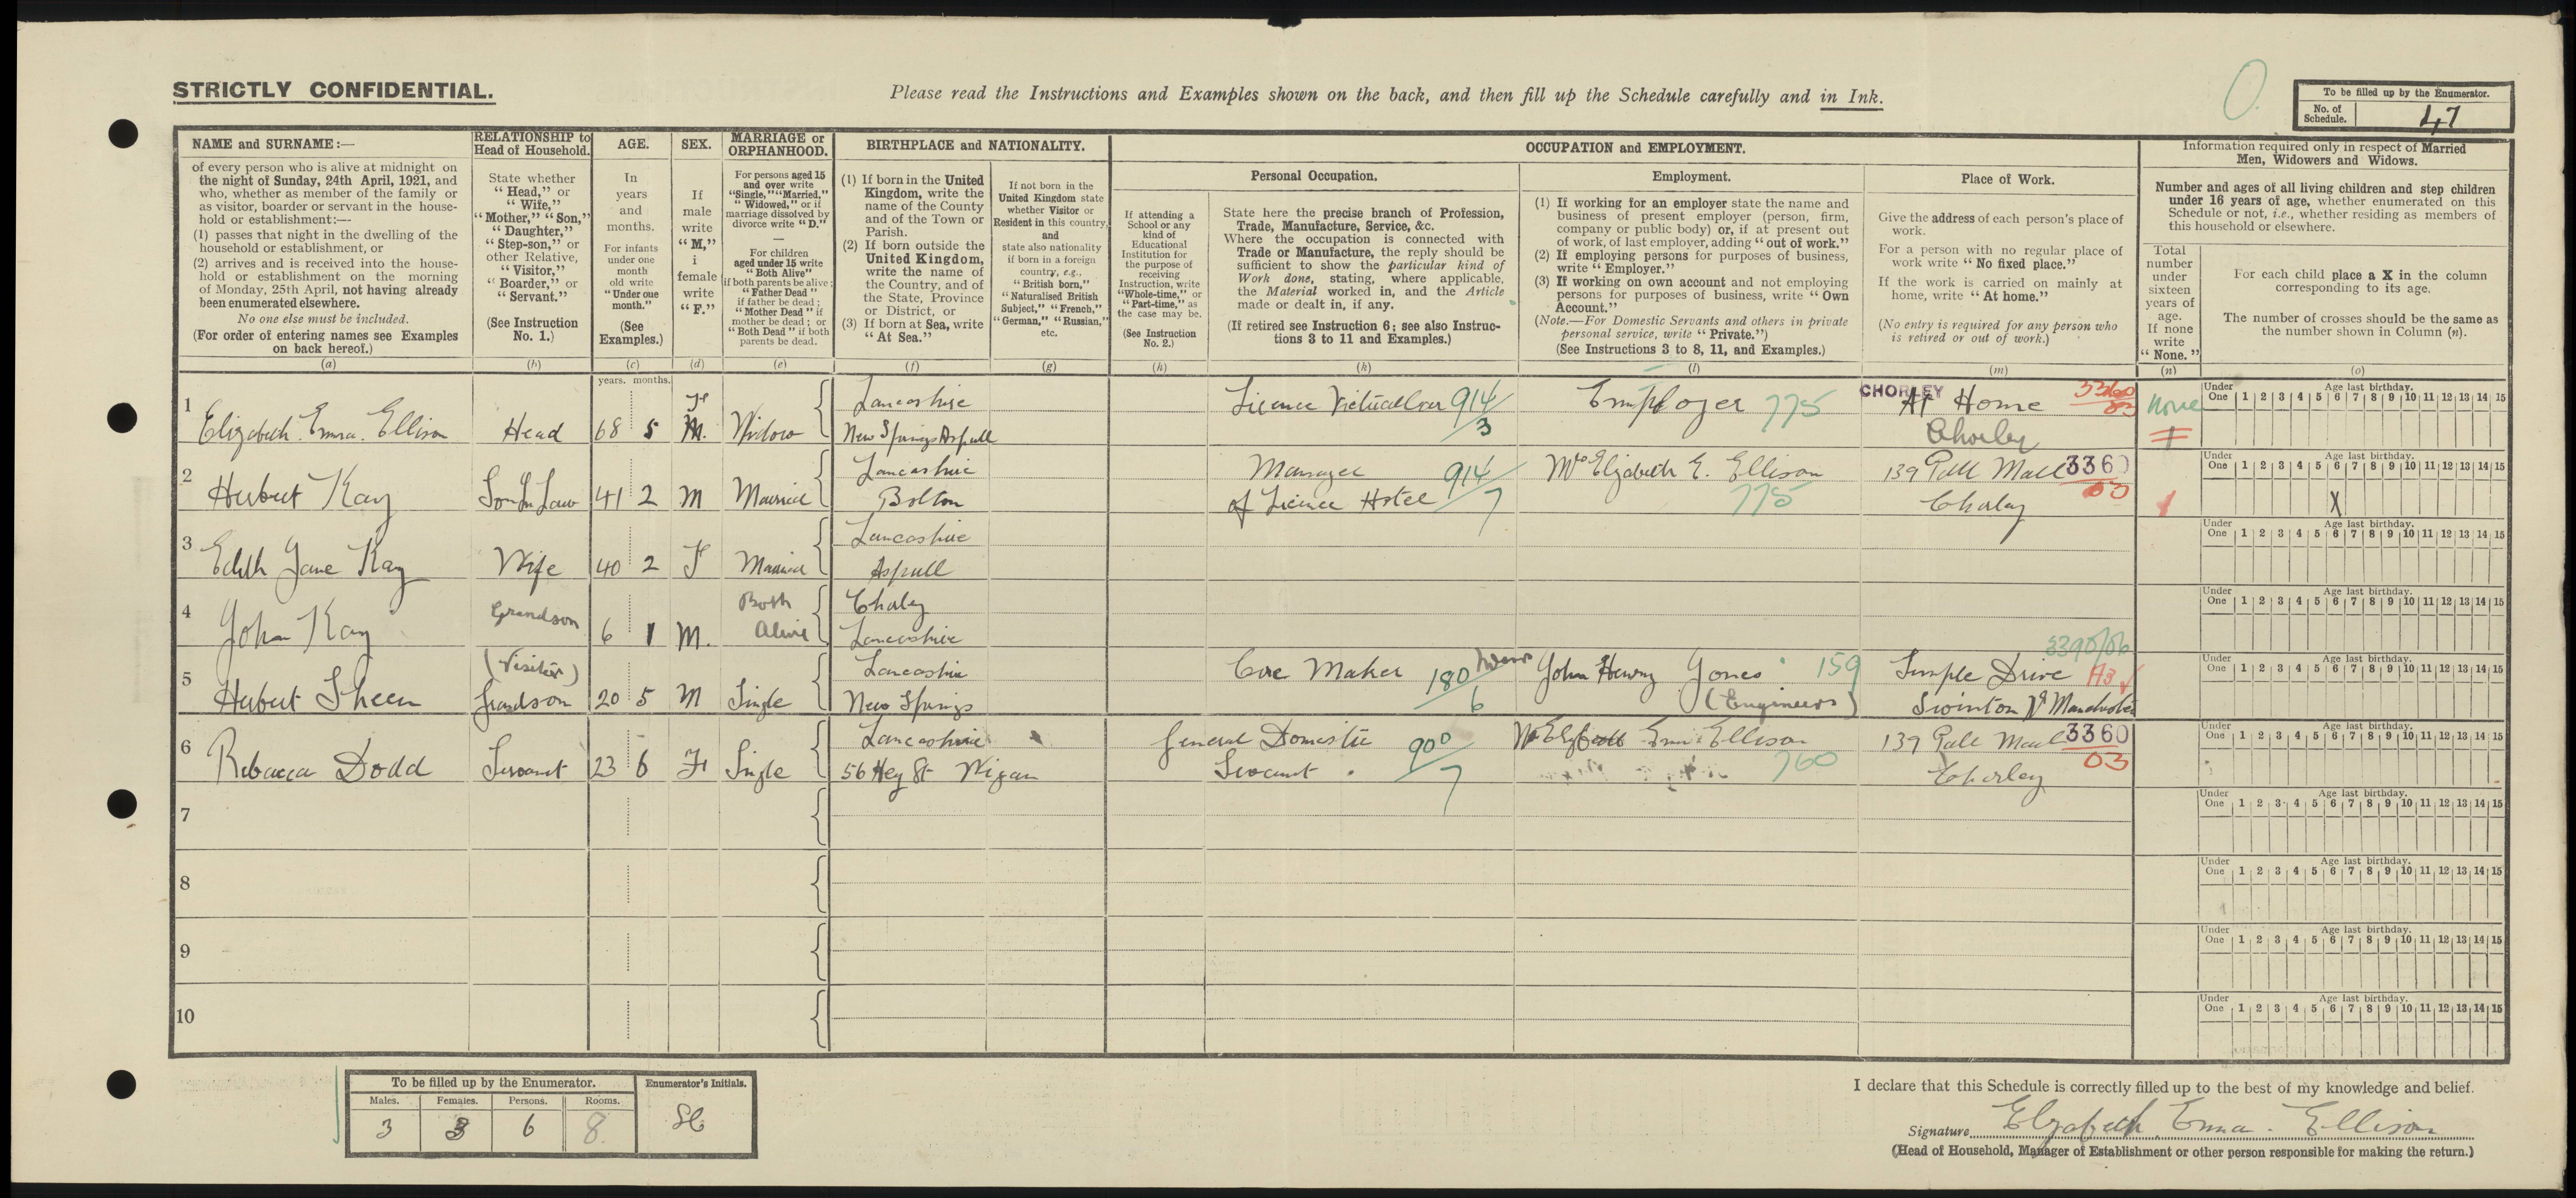 STRICTLY CONFIDENTIAL.
Please read the Instructions and Examples shown on the back, and then fill up the Schedule carefully and in Ink.
To be filled up by the Enumerator.
No. of Schedule. 47
NAME and SURNAME:—
of every person who is alive at midnight on
the night of Sunday, 24th April, 1921, and
who, whether as member of the family or
as visitor, boarder or servant in the house-
hold or establishment:—
(1) passes that night in the dwelling of the
household or establishment, or
(2) arrives and is received into the house-
hold or establishment on the morning
of Monday, 25th April, not having already
been enumerated elsewhere.
No one else must be included.
(For order of entering names see Examples
on back hereof.)
(a)
RELATIONSHIP to
Head of Household.
State whether
“Head,” or
“Wife,”
“Mother,” “Son,”
“Daughter,”
“Step-son,” or
other Relative,
“Visitor,”
“Boarder,” or
“Servant.”
(See Instruction
No. 1.)
(b)
AGE.
In
years
and
months.
For infants
under one
month
old write
“Under one
month.”
(See
Examples.)
(c)
SEX.
If
male
write
“M,”
i
female
write
“F.”
(d)
MARRIAGE or
ORPHANHOOD.
For persons aged 15
and over write
“Single,” “Married,”
“Widowed,” or if
marriage dissolved by
divorce write “D.”
—
For children
aged under 15 write
“Both Alive”
if both parents be alive;
“Father Dead”
if father be dead;
“Mother Dead” if
mother be dead; or
“Both Dead” if both
parents be dead.
(e)
BIRTHPLACE and NATIONALITY.
(1) If born in the United
Kingdom, write the
name of the County
and of the Town or
Parish.
(2) If born outside the
United Kingdom,
write the name of
the Country, and of
the State, Province
or District, or
(3) If born at Sea, write
“At Sea.”
(f)
If not born in the
United Kingdom state
whether Visitor or
Resident in this country,
and
state also nationality
if born in a foreign
country, e.g.,
“British born,”
“Naturalised British
Subject,” “French,”
“German,” “Russian,”
etc.
(g)
OCCUPATION and EMPLOYMENT.
Personal Occupation.
If attending a
School or any
kind of
Educational
Institution for
the purpose of
receiving
Instruction, write
“Whole-time,” or
“Part-time,” as
the case may be.
(See Instruction
No. 2.)
(h)
State here the precise branch of Profession,
Trade, Manufacture, Service, &c.
Where the occupation is connected with
Trade or Manufacture, the reply should be
sufficient to show the particular kind of
Work done, stating, where applicable,
the Material worked in, and the Article
made or dealt in, if any.
(If retired see Instruction 6; see also Instruc-
tions 3 to 11 and Examples.)
(k)
Employment.
(1) If working for an employer state the name and
business of present employer (person, firm,
company or public body) or, if at present out
of work, of last employer, adding “out of work.”
(2) If employing persons for purposes of business,
write “Employer.”
(3) If working on own account and not employing
persons for purposes of business, write “Own
Account.”
(Note.—For Domestic Servants and others in private
personal service, write “Private.”)
(See Instructions 3 to 8, 11, and Examples.)
(l)
Place of Work.
Give the address of each person's place of
work.
For a person with no regular place of
work write “No fixed place.”
If the work is carried on mainly at
home, write “At home.”
(No entry is required for any person who
is retired or out of work.)
(m)
Information required only in respect of Married
Men, Widowers and Widows.
Number and ages of all living children and step children
under 16 years of age, whether enumerated on this
Schedule or not, i.e., whether residing as members of
this household or elsewhere.
Total
number
under
sixteen
years of
age.
If none
write
“None.”
(n)
For each child place a X in the column
corresponding to its age.
The number of crosses should be the same as
the number shown in Column (n).
(o)
years. months.
1 Elizabeth Emma Ellison Head 68 5 F M. Widow Lancashire New Springs Aspull Licence Victualler 914/3 Employer 775 CHORLEY At Home Chorley 3360 03 none
2 Herbert Kay Son In Law 41 2 M Married Lancashire Bolton Manager of Licence Hotel 914/7 Mrs Elizabeth E. Ellison 775 139 Pall Mall Chorley 3360 03 1 X
3 Edith Jane Kay Wife 40 2 F Married Lancashire Aspull
4 John Kay Grandson 6 1 M. Both Alive Chorley Lancashire
5 Herbert Sheen (Visitor) Grandson 20 5 M Single Lancashire New Springs Core Maker 180/6 John Henry Jones 159 (Engineers) Temple Drive Swinton Nr Manchester 3390/06
6 Rebecca Dodd Servant 23 6 F Single Lancashire 56 Hey St Wigan General Domestic Servant 900/7 Emma Ellison 760 139 Pall Mall Chorley 3360 03
7
8
9
10
Under One 1 2 3 4 5 6 7 8 9 10 11 12 13 14 15
Age last birthday.
To be filled up by the Enumerator.
Males. Females. Persons. Rooms.
3 3 6 8
Enumerator's Initials.
I declare that this Schedule is correctly filled up to the best of my knowledge and belief.
Signature Elizabeth Emma Ellison
(Head of Household, Manager of Establishment or other person responsible for making the return.)